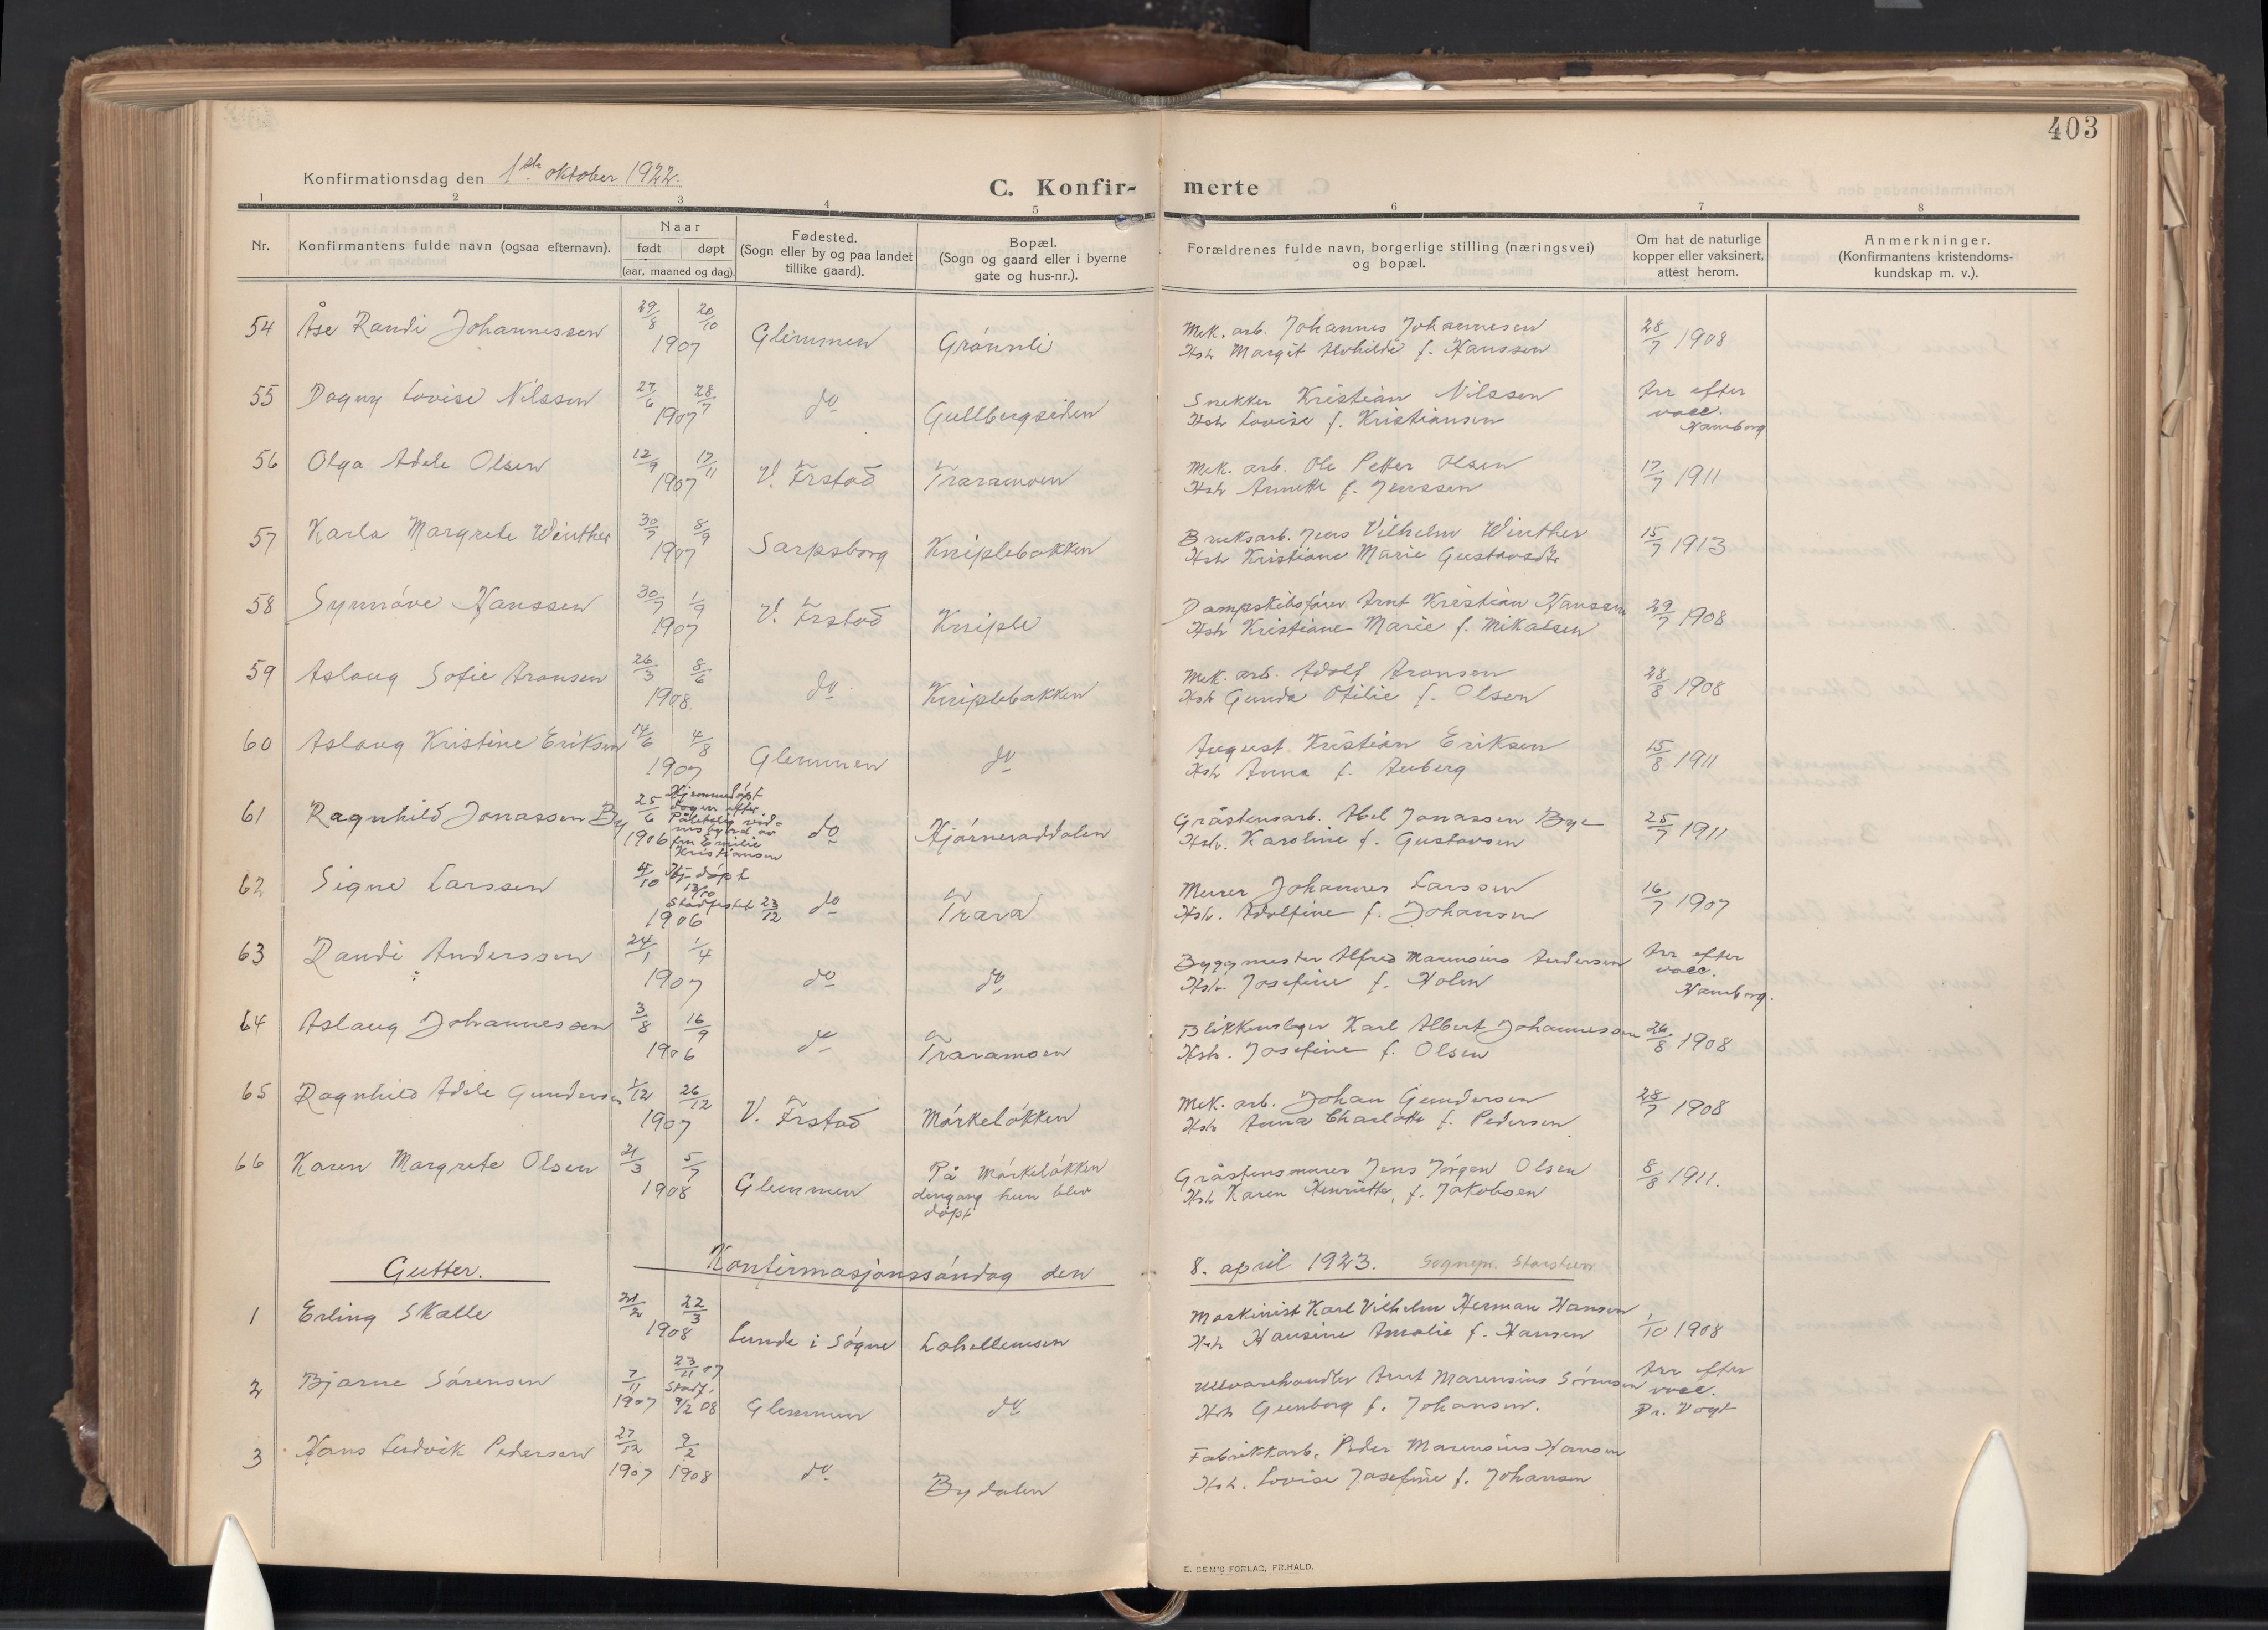 403
Konfirmationsdag den 1ste oktober 1922.
C. Konfir- merte
1 2 3 4 5 6 7 8
Nr. Konfirmantens fulde navn (ogsaa efternavn). Naar født døpt (aar, maaned og dag). Fødested. (Sogn eller by og paa landet tillike gaard). Bopæl. (Sogn og gaard eller i byerne gate og hus-nr.). Forældrenes fulde navn, borgerlige stilling (næringsvei) og bopæl. Om hat de naturlige kopper eller vaksinert, attest herom. Anmerkninger. (Konfirmantens kristendoms- kundskap m. v.).
54 Åse Randi Johannessen 29/8 20/10 1907 Glemmen Grønnli Mek. arb. Johannes Johannesen 28/7 1908
Hstr Margit f. Hanssen
55 Dagny Lovise Nilssen 27/6 28/7 1907 do Gullbergseiden Snekker Kristian Nilssen Arr efter
Hstr Lovise f. Kristiansen vacc. Hamborg
56 Olga Adele Olsen 12/9 17/11 1907 V. Frstad Traramoen Mek. arb. Ole Petter Olsen 17/7 1911
Hstr Annette f. Jenssen
57 Karla Margrete Winther 30/7 8/9 1907 Sarpsborg Kniplebakken Bruksarb. Jens Vilhelm Winther 15/7 1913
Hstr Kristiane Marie Gustavsdtr
58 Synnøve Hanssen 30/7 1/9 1907 V. Frstad Kniple Dampskibsfører Arnt Kristian Hanssen 29/7 1908
Hstr Kristiane Marie f. Mikalsen
59 Aslaug Sofie Aronsen 26/3 8/6 1908 do Kniplebakken Mek. arb. Adolf Aronsen 28/8 1908
Hstr Gunda Otilie f. Olsen
60 Aslaug Kristine Eriksen 14/6 4/8 1907 Glemmen do August Kristian Eriksen 15/8 1911
Hstr Anna f. Auberg
61 Ragnhild Jonassen By 25/6 1906 Hjemmedøpt dagen efter Pålitelig vid- nesbyrd av fru Emilie Kristiansen do Hjørneraddalen Gråstensarb. Abel Jonassen Bye 25/7 1911
Hstr. Karoline f. Gustavsen
62 Signe Larssen 4/10 Hj. døpt 13/10 Stadfestet 23/12 1906 do Trara Murer Johannes Larssen 16/7 1907
Hstr. Adolfine f. Johansen
63 Randi Anderssen 24/1 1/4 1907 do do Byggmester Alfred Marensius Andersen Arr efter
Hstr. Josefine f. Holm vacc. Hamborg.
64 Aslaug Johannessen 3/8 16/9 1906 do Traramoen Blikkenslager Karl Albert Johannessen 26/8 1908
Hstr. Josefine f. Olsen
65 Ragnhild Adele Gundersen 1/12 26/12 1907 V. Frstad Mørkeløkken Mek. arb. Johan Gundersen 28/7 1908
Hstr Anna Charlotte f. Pedersen
66 Karen Margrete Olsen 21/3 5/7 1908 Glemmen På Mørkeløkken dengang hun blev døpt Gråstensmurer Jens Jørgen Olsen 8/8 1911.
Hstr Karen Henriette f. Jakobsen
Gutter. Konfirmasjonssøndag den 8. april 1923. Sognepr.
1 Erling Skalle 21/2 22/3 1908 Lunde i Søgne Lahellemoen Maskinist Karl Vilhelm Herman Hansen 1/10 1908
Hstr Hansine Amalie f. Hansen
2 Bjarne Sørensen 7/11 1907 23/11 07 Stadf. 9/2 08 Glemmen do Ullvarehandler Arnt Marensius Sørensen Arr efter
Hstr Gunborg f. Johansen. vacc. Dr. Vogt
3 Hans Ludvik Pedersen 27/12 1907 9/2 1908 do Bydalen Fabrikkarb. Peder Marensius Hansen
Hstr. Lovise Josefine f. Johansen
E. SEM'S FORLAG, FR.HALD.